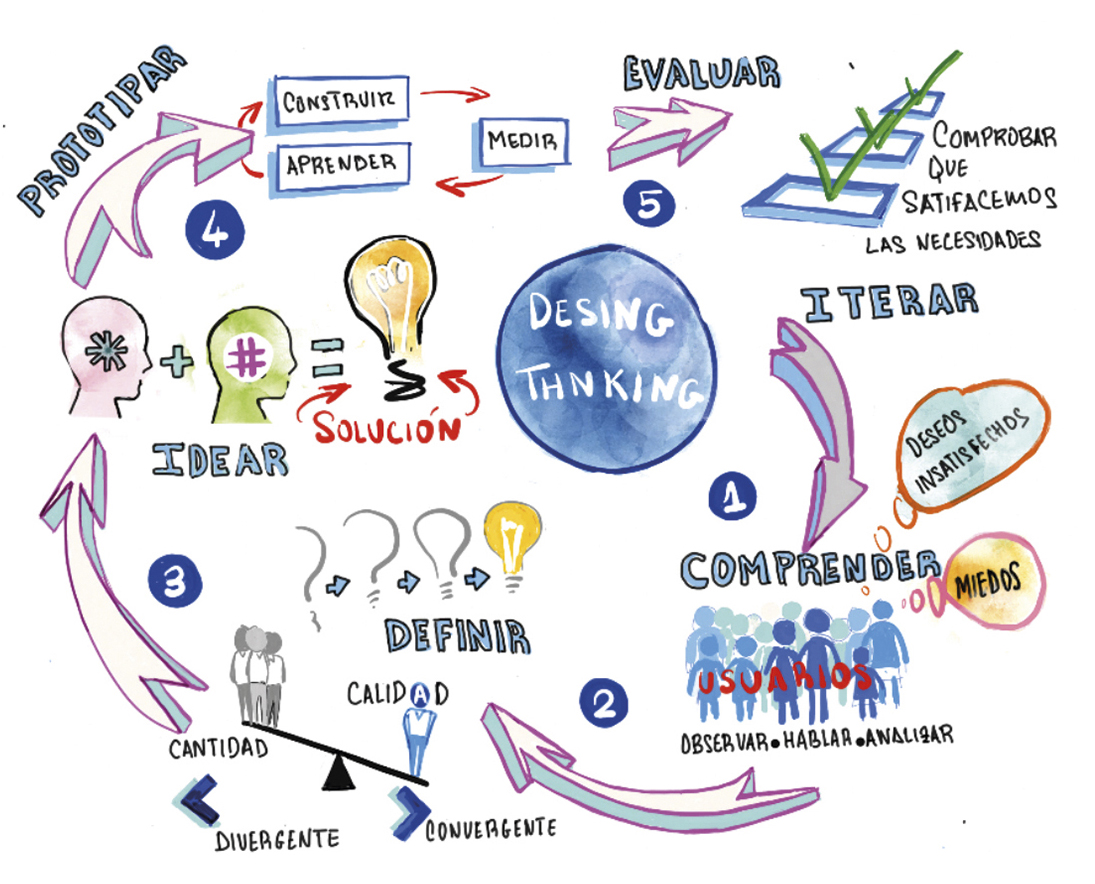 PROTOTIPAR
CONSTRUIR
APRENDER
MEDIR
4
EVALUAR
5
COMPROBAR
QUE
SATIFACEMOS
LAS NECESIDADES
ITERAR
DESING
THNKING
*
+
#
=
SOLUCIÓN
IDEAR
DESEOS
INSATISFECHOS
1
COMPRENDER
MIEDOS
USUARIOS
OBSERVAR•HABLAR•ANALIZAR
2
3
DEFINIR
CALIDAD
CANTIDAD
DIVERGENTE
CONVERGENTE